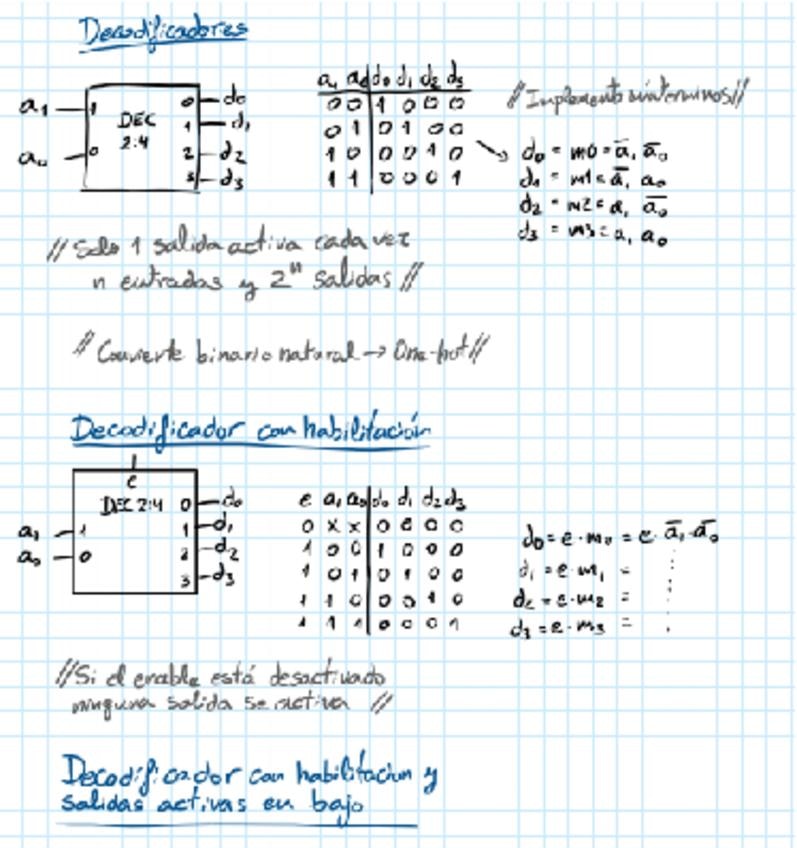 Decodificadores
a₁ 1 DEC 2:4 0 d₀
1 d₁
a₀ 0 2 d₂
3 d₃
a₁ a₀ d₀ d₁ d₂ d₃
0 0 1 0 0 0
0 1 0 1 0 0
1 0 0 0 1 0
1 1 0 0 0 1
// Implementa minterminos //
d₀ = m0 = a̅₁ a̅₀
d₁ = m1 = a̅₁ a₀
d₂ = m2 = a₁ a̅₀
d₃ = m3 = a₁ a₀
// Solo 1 salida activa cada vez
n entradas y 2ⁿ salidas //
// Convierte binario natural → One-hot //
Decodificador con habilitación
e
DEC 2:4 0 d₀
a₁ 1 1 d₁
a₀ 0 2 d₂
3 d₃
e a₁ a₀ d₀ d₁ d₂ d₃
0 x x 0 0 0 0
1 0 0 1 0 0 0
1 0 1 0 1 0 0
1 1 0 0 0 1 0
1 1 1 0 0 0 1
d₀ = e · m₀ = e · a̅₁ · a̅₀
d₁ = e · m₁ =
d₂ = e · m₂ =
d₃ = e · m₃ =
// Si el enable está desactivado
ninguna salida se activa //
Decodificador con habilitacion y
salidas activas en bajo